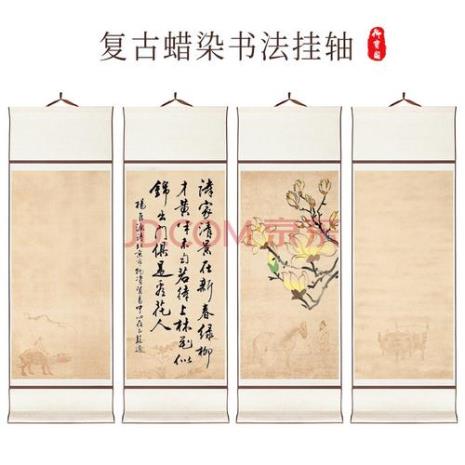 复古蜡染书法挂轴
詩家清景在新春绿柳
才黄半未匀若待上林花似
錦出门俱是看花人
楊巨源
JD.COM 京东